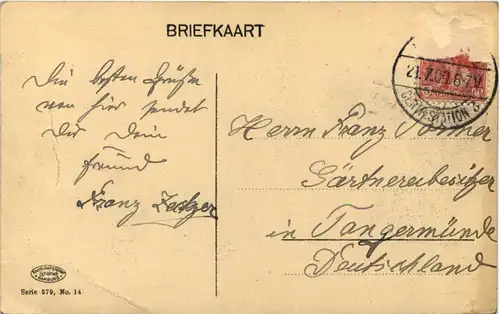 BRIEFKAART
Die besten Grüße
von hier sendet
Dir Dein
Freund
Franz
Herrn Franz
Gärtnereibesitzer
in Tangermünde
Deutschland
Serie 579, No. 14